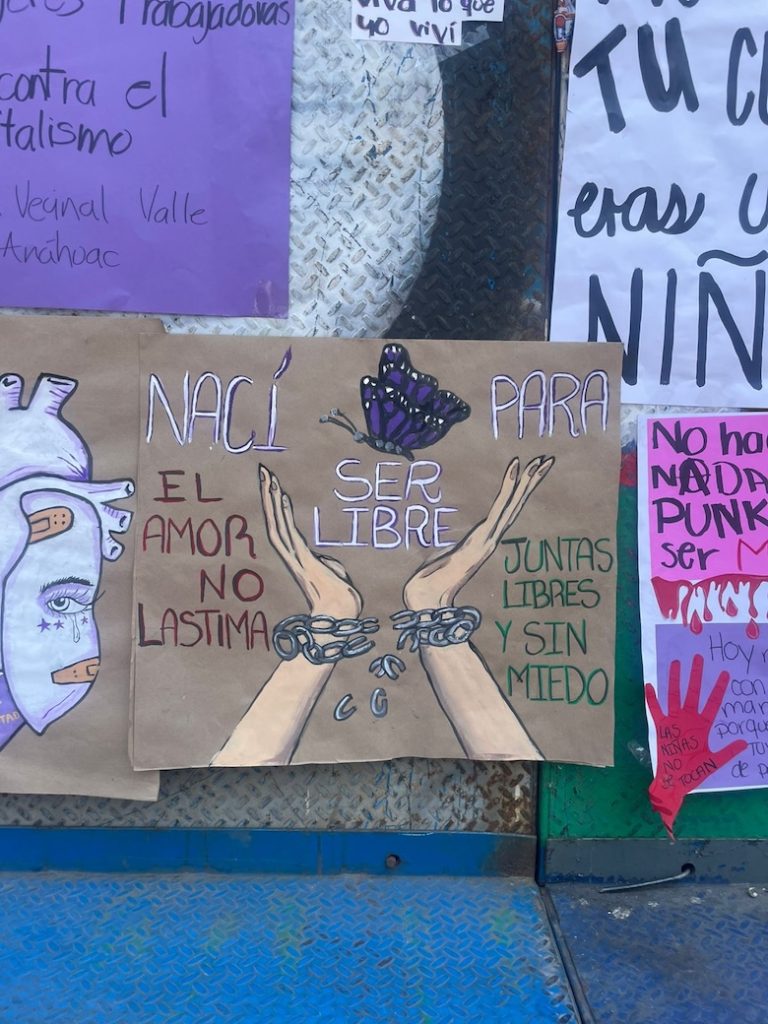 Trabajadoras
contra el
Vecinal Valle
Anáhuac
viva lo que
yo viví
TU
eras
NACÍ PARA
SER
LIBRE
EL
AMOR
NO
LASTIMA
JUNTAS
LIBRES
Y SIN
MIEDO
No
NADA
PUNK
ser
Hoy
con
porque
de
LAS
NIÑAS
NO
SE
TOCAN